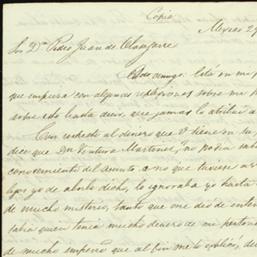 Copia
Mexico 29
Sr Dn Pedro Juan de Olasgarre
Está en mi p
que empieza con algunas reflexiones sobre mi
sobre esto hasta decir que jamás lo atribuí a
Con respecto al dinero que V tiene en su
dice que Dn Ventura Martinez, no podia sab
conocimiento del asunto, a no que tuviese
lejos yo de haberlo dicho, lo ignoraba yo hasta
de mucho misterio, tanto que me dió de enten
sabia quien tenía mucho dinero de mi pertene
de mucho empeño que al fin me lo esplicó, de